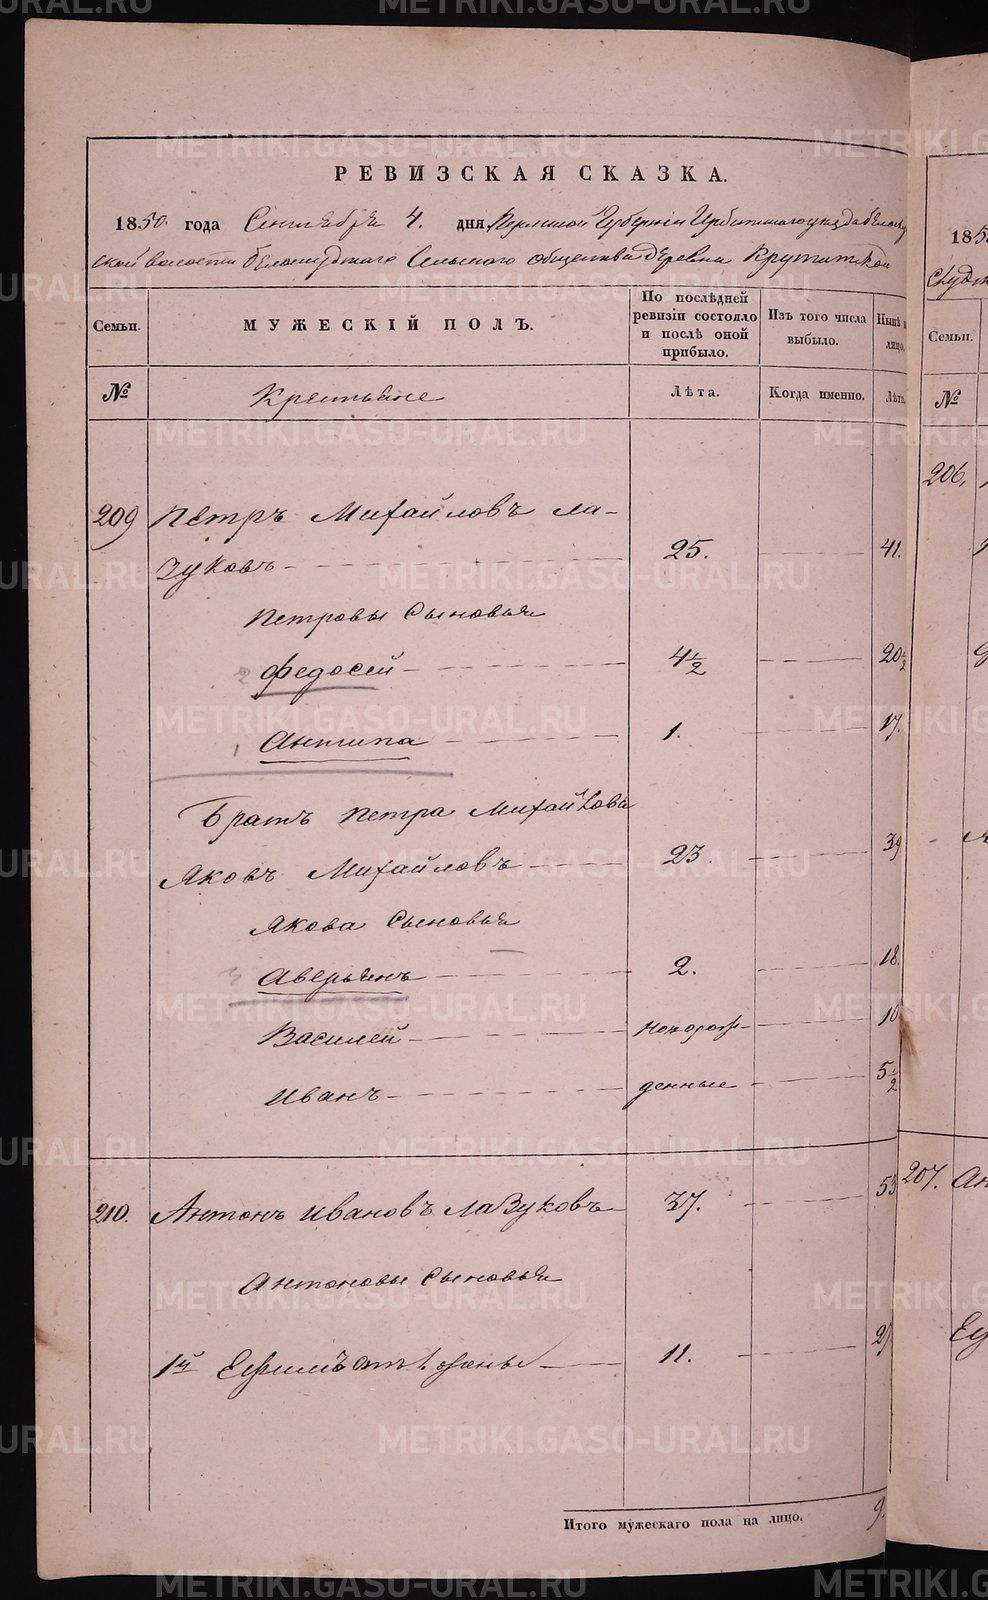 РЕВИЗСКАЯ СКАЗКА.
1850 года Сентября 4. дня Пермской Губернiи Ирбитскаго уезда Белослу
ской волости Белослудскаго Сельскаго общества Деревни Крутитской
Семьи.
МУЖЕСКIЙ ПОЛЪ.
По послѣдней ревизiи состояло и послѣ оной прибыло.
Изъ того числа выбыло.
Нынѣ на лицо.
№
Крестьяне
Лѣта.
Когда именно.
Лѣта.
209 Петръ Михайловъ Ла-
зуковъ 25. 41.
Петровы Сыновья
2 Федосей 4 1/2 20 1/2
1 Антипа 1. 17.
Братъ Петра Михайлова
Яковъ Михайловъ 23. 39
Якова Сыновья
3 Аверьянъ 2. 18.
Василей не рож- 10
Иванъ денные 5 1/2
210. Антонъ Ивановъ Лазуковъ 37. 53
Антоновы Сыновья
1й Ефимъ от 1 жены 11. 27
Итого мужескаго пола на лицо. 9.
185
слудск
Семьи.
№
206,
207. Ан
Еф
METRIKI.GASO-URAL.RU